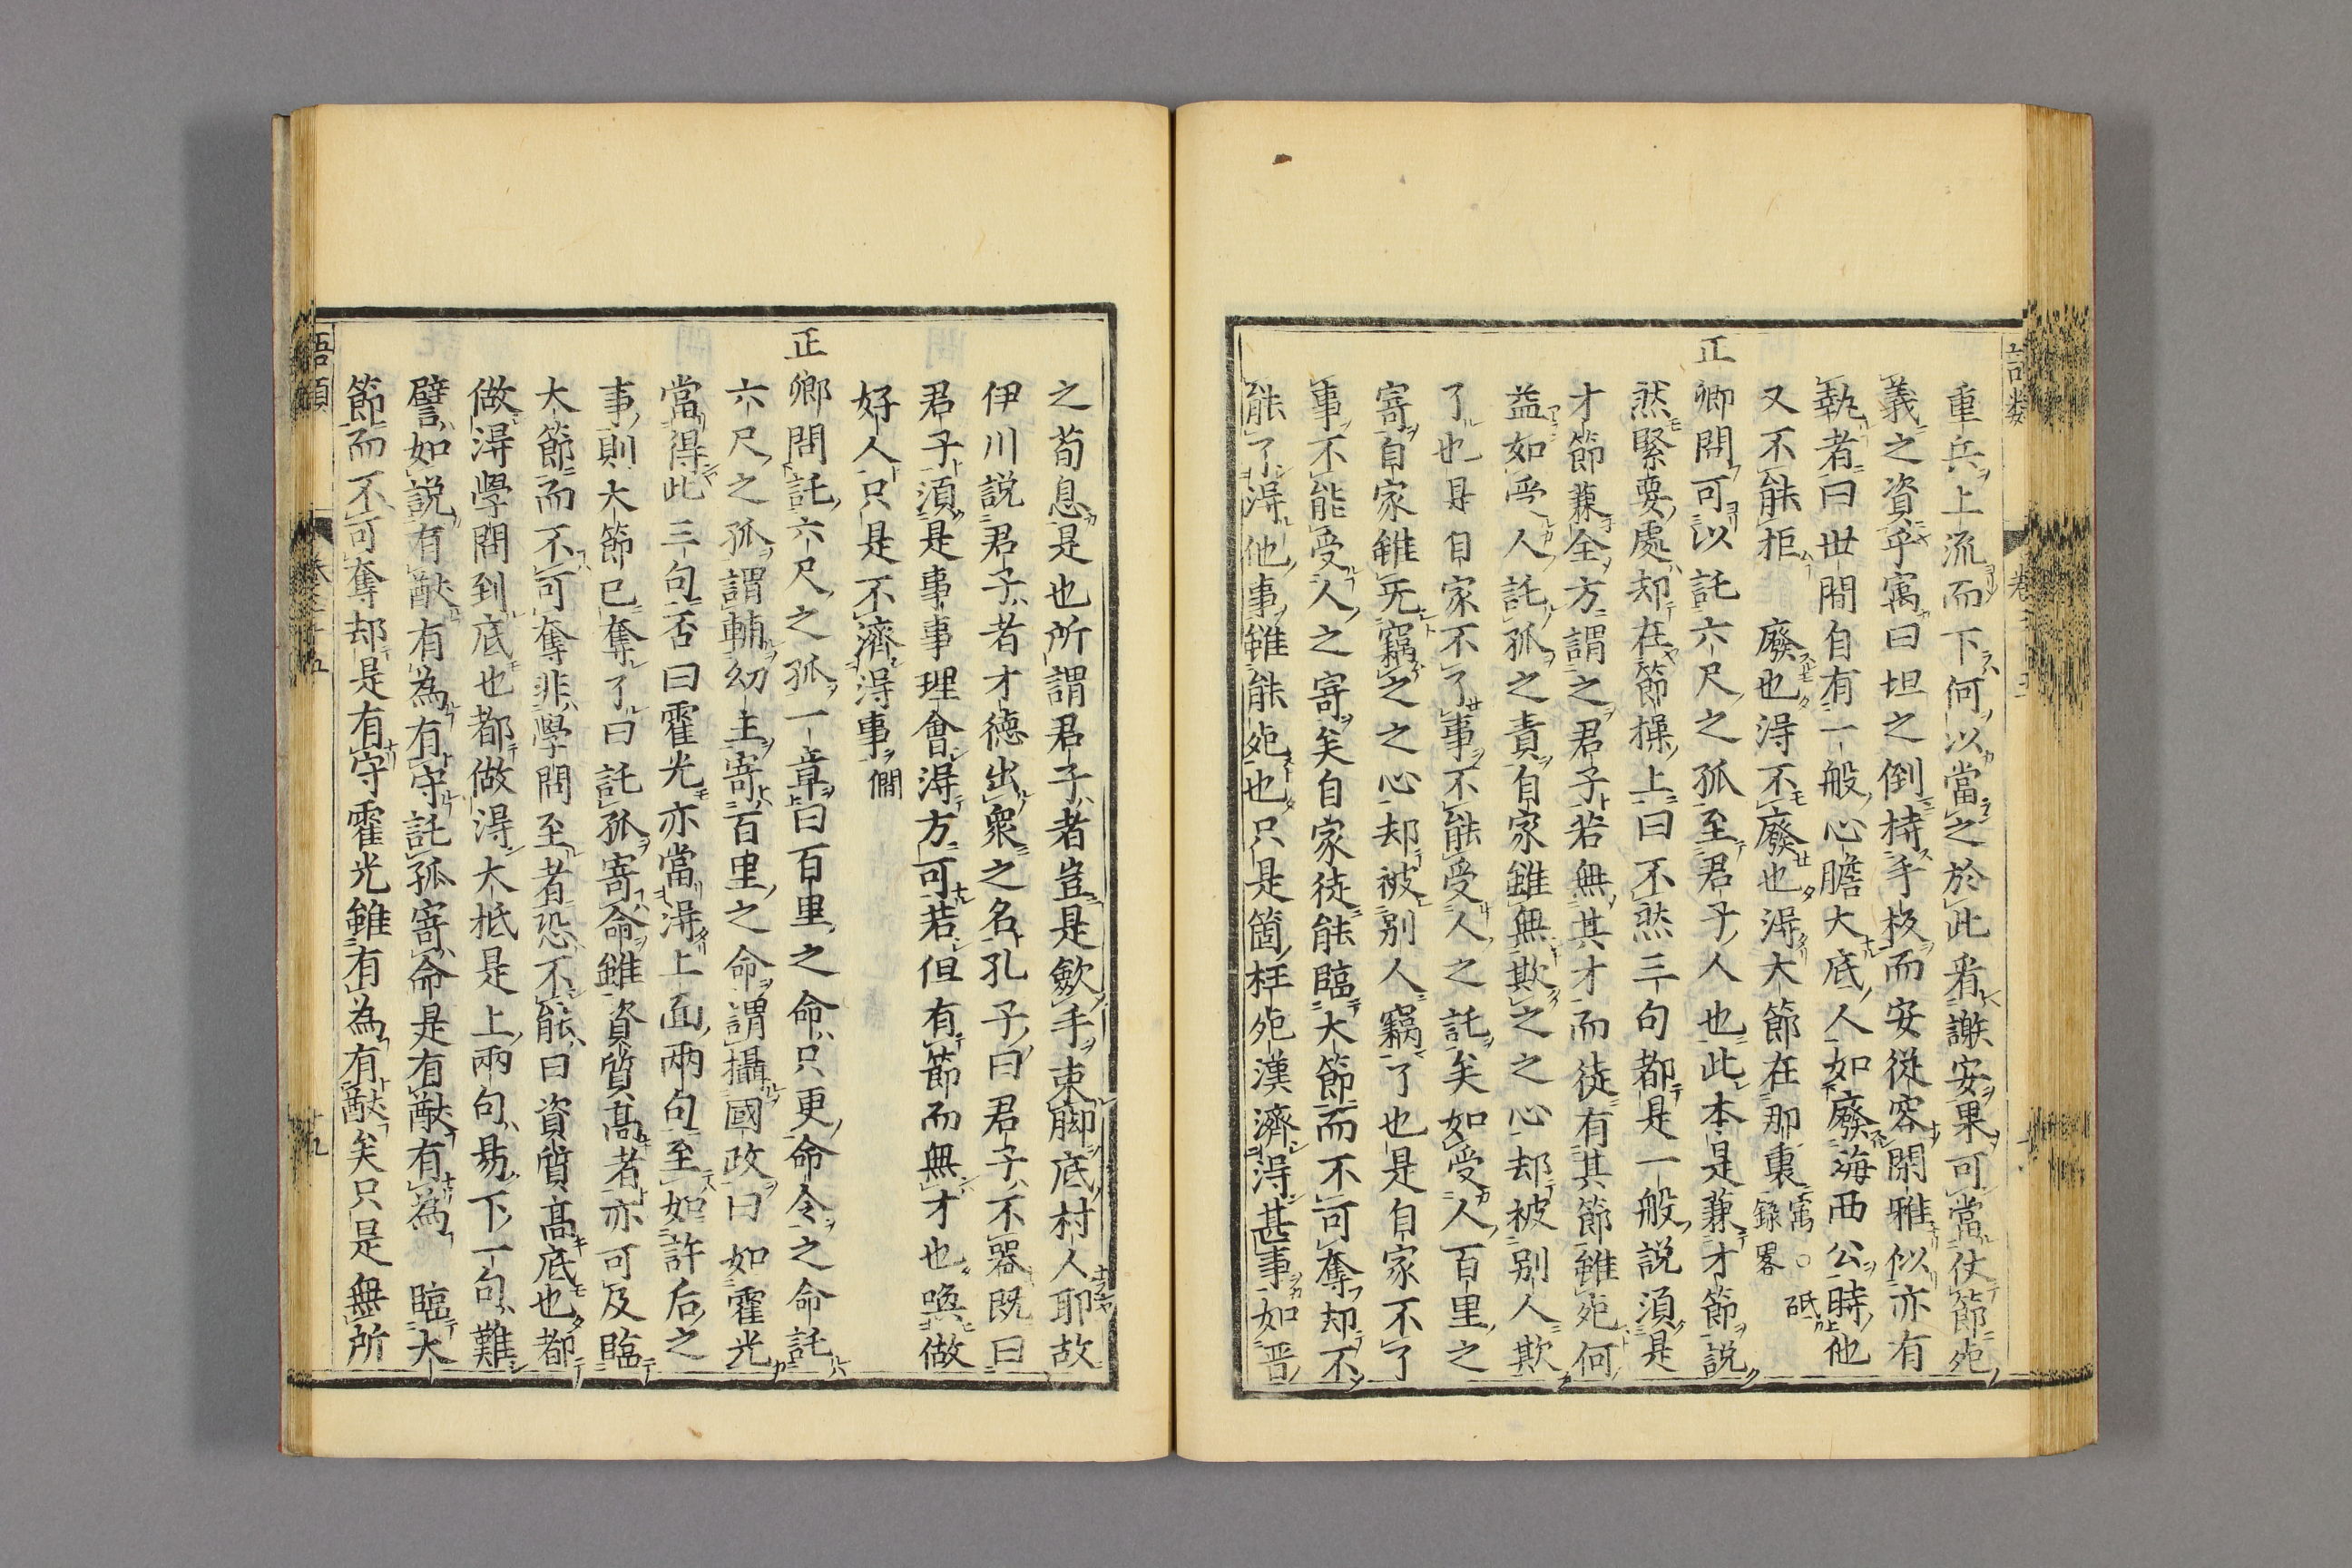 重兵上流而下何以當之於此看謝安果可當仗節死
義之資乎寓曰坦之倒持手板而安從容閑雅似亦有
執者曰世間自有一般心膽大底人如廢海西公時他
又不能拒廢也得不廢也得大節在那裏寓○砥錄畧
正卿問可以託六尺之孤至君子人也此本是兼才節說
然緊要處却在節操上曰不然三句都是一般說須是
才節兼全方謂之君子若無其才而徒有其節雖死何
益如受人託孤之責自家雖無欺之之心却被別人欺
了也是自家不了事不能受人之託矣如受人百里之
寄自家雖无竊之之心却被別人竊了也是自家不了
事不能受人之寄矣自家徒能臨大節而不可奪却不
能了得他事雖能死也只是箇枉死漢濟得甚事如晋
之荀息是也所謂君子者豈是歛手束脚底村人耶故
伊川說君子者才德出衆之名孔子曰君子不器既曰
君子須是事事理會得方可若但有節而無才也喚做
好人只是不濟得事僩
正卿問託六尺之孤一章曰百里之命只更命令之命託
六尺之孤謂輔幼主寄百里之命謂攝國政曰如霍光
當得此三句否曰霍光亦當得上面兩句至如許后之
事則大節已奪了曰託孤寄命雖資質高者亦可及臨
大節而不可奪非學問至者恐不能曰資質高底也都
做得學問到底也都做得大抵是上兩句易下一句難
譬如說有猷有為有守託孤寄命是有猷有為臨大
節而不可奪却是有守霍光雖有為有猷矣只是無所